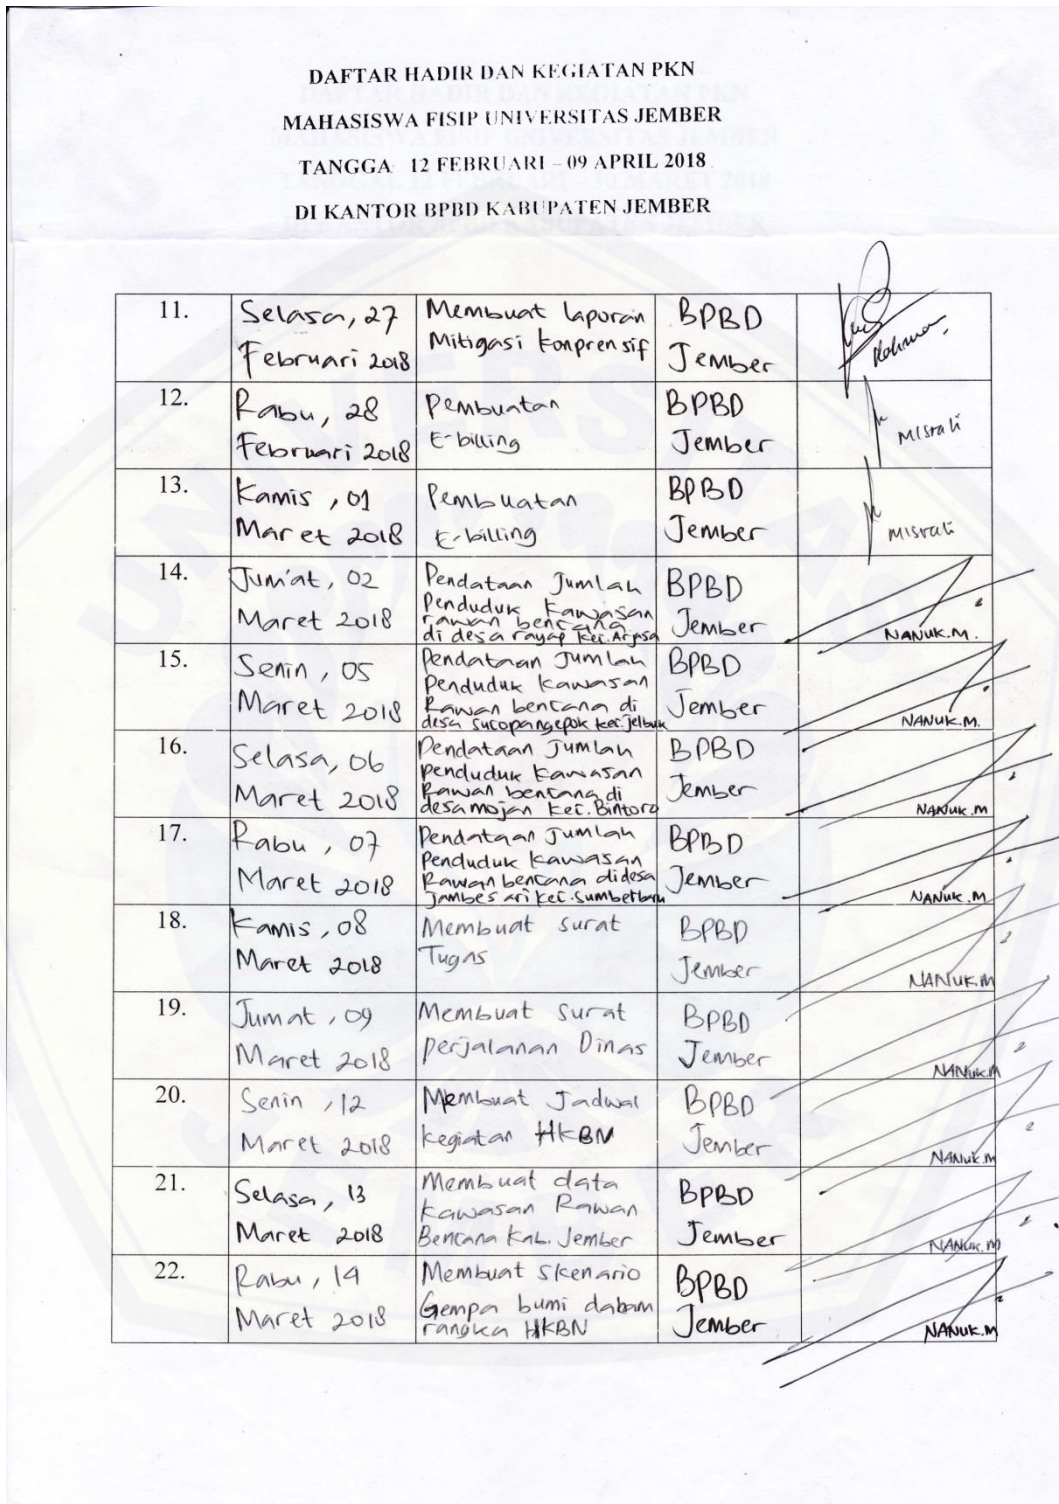 DAFTAR HADIR DAN KEGIATAN PKN
MAHASISWA FISIP UNIVERSITAS JEMBER
TANGGA 12 FEBRUARI - 09 APRIL 2018
DI KANTOR BPBD KABUPATEN JEMBER
11. Selasa, 27 Februari 2018 Membuat laporan Mitigasi konprensif BPBD Jember Rahman
12. Rabu, 28 Februari 2018 Pembuatan E-billing BPBD Jember Misrali
13. Kamis, 01 Maret 2018 Pembuatan E-billing BPBD Jember Misrali
14. Jum'at, 02 Maret 2018 Pendataan Jumlah Penduduk kawasan rawan bencana di desa rayap kec. Arjasa BPBD Jember NANUK.M.
15. Senin, 05 Maret 2018 Pendataan Jumlah Penduduk kawasan Rawan bencana di desa sucopangepok kec. jelbuk BPBD Jember NANUK.M.
16. Selasa, 06 Maret 2018 Pendataan Jumlah penduduk kawasan Rawan bencana di desa mojan kec. Bintoro BPBD Jember NANUK.M
17. Rabu, 07 Maret 2018 Pendataan Jumlah Penduduk kawasan Rawan bencana didesa Jambesari kec. Sumberbaru BPBD Jember NANUK.M
18. Kamis, 08 Maret 2018 Membuat surat Tugas BPBD Jember NANUK.M
19. Jumat, 09 Maret 2018 Membuat surat perjalanan Dinas BPBD Jember NANUK.M
20. Senin, 12 Maret 2018 Membuat Jadwal kegiatan HKBN BPBD Jember NANUK.M
21. Selasa, 13 Maret 2018 Membuat data kawasan Rawan Bencana Kab. Jember BPBD Jember NANUK.M
22. Rabu, 14 Maret 2018 Membuat Skenario Gempa bumi dabam rangka HKBN BPBD Jember NANUK.M